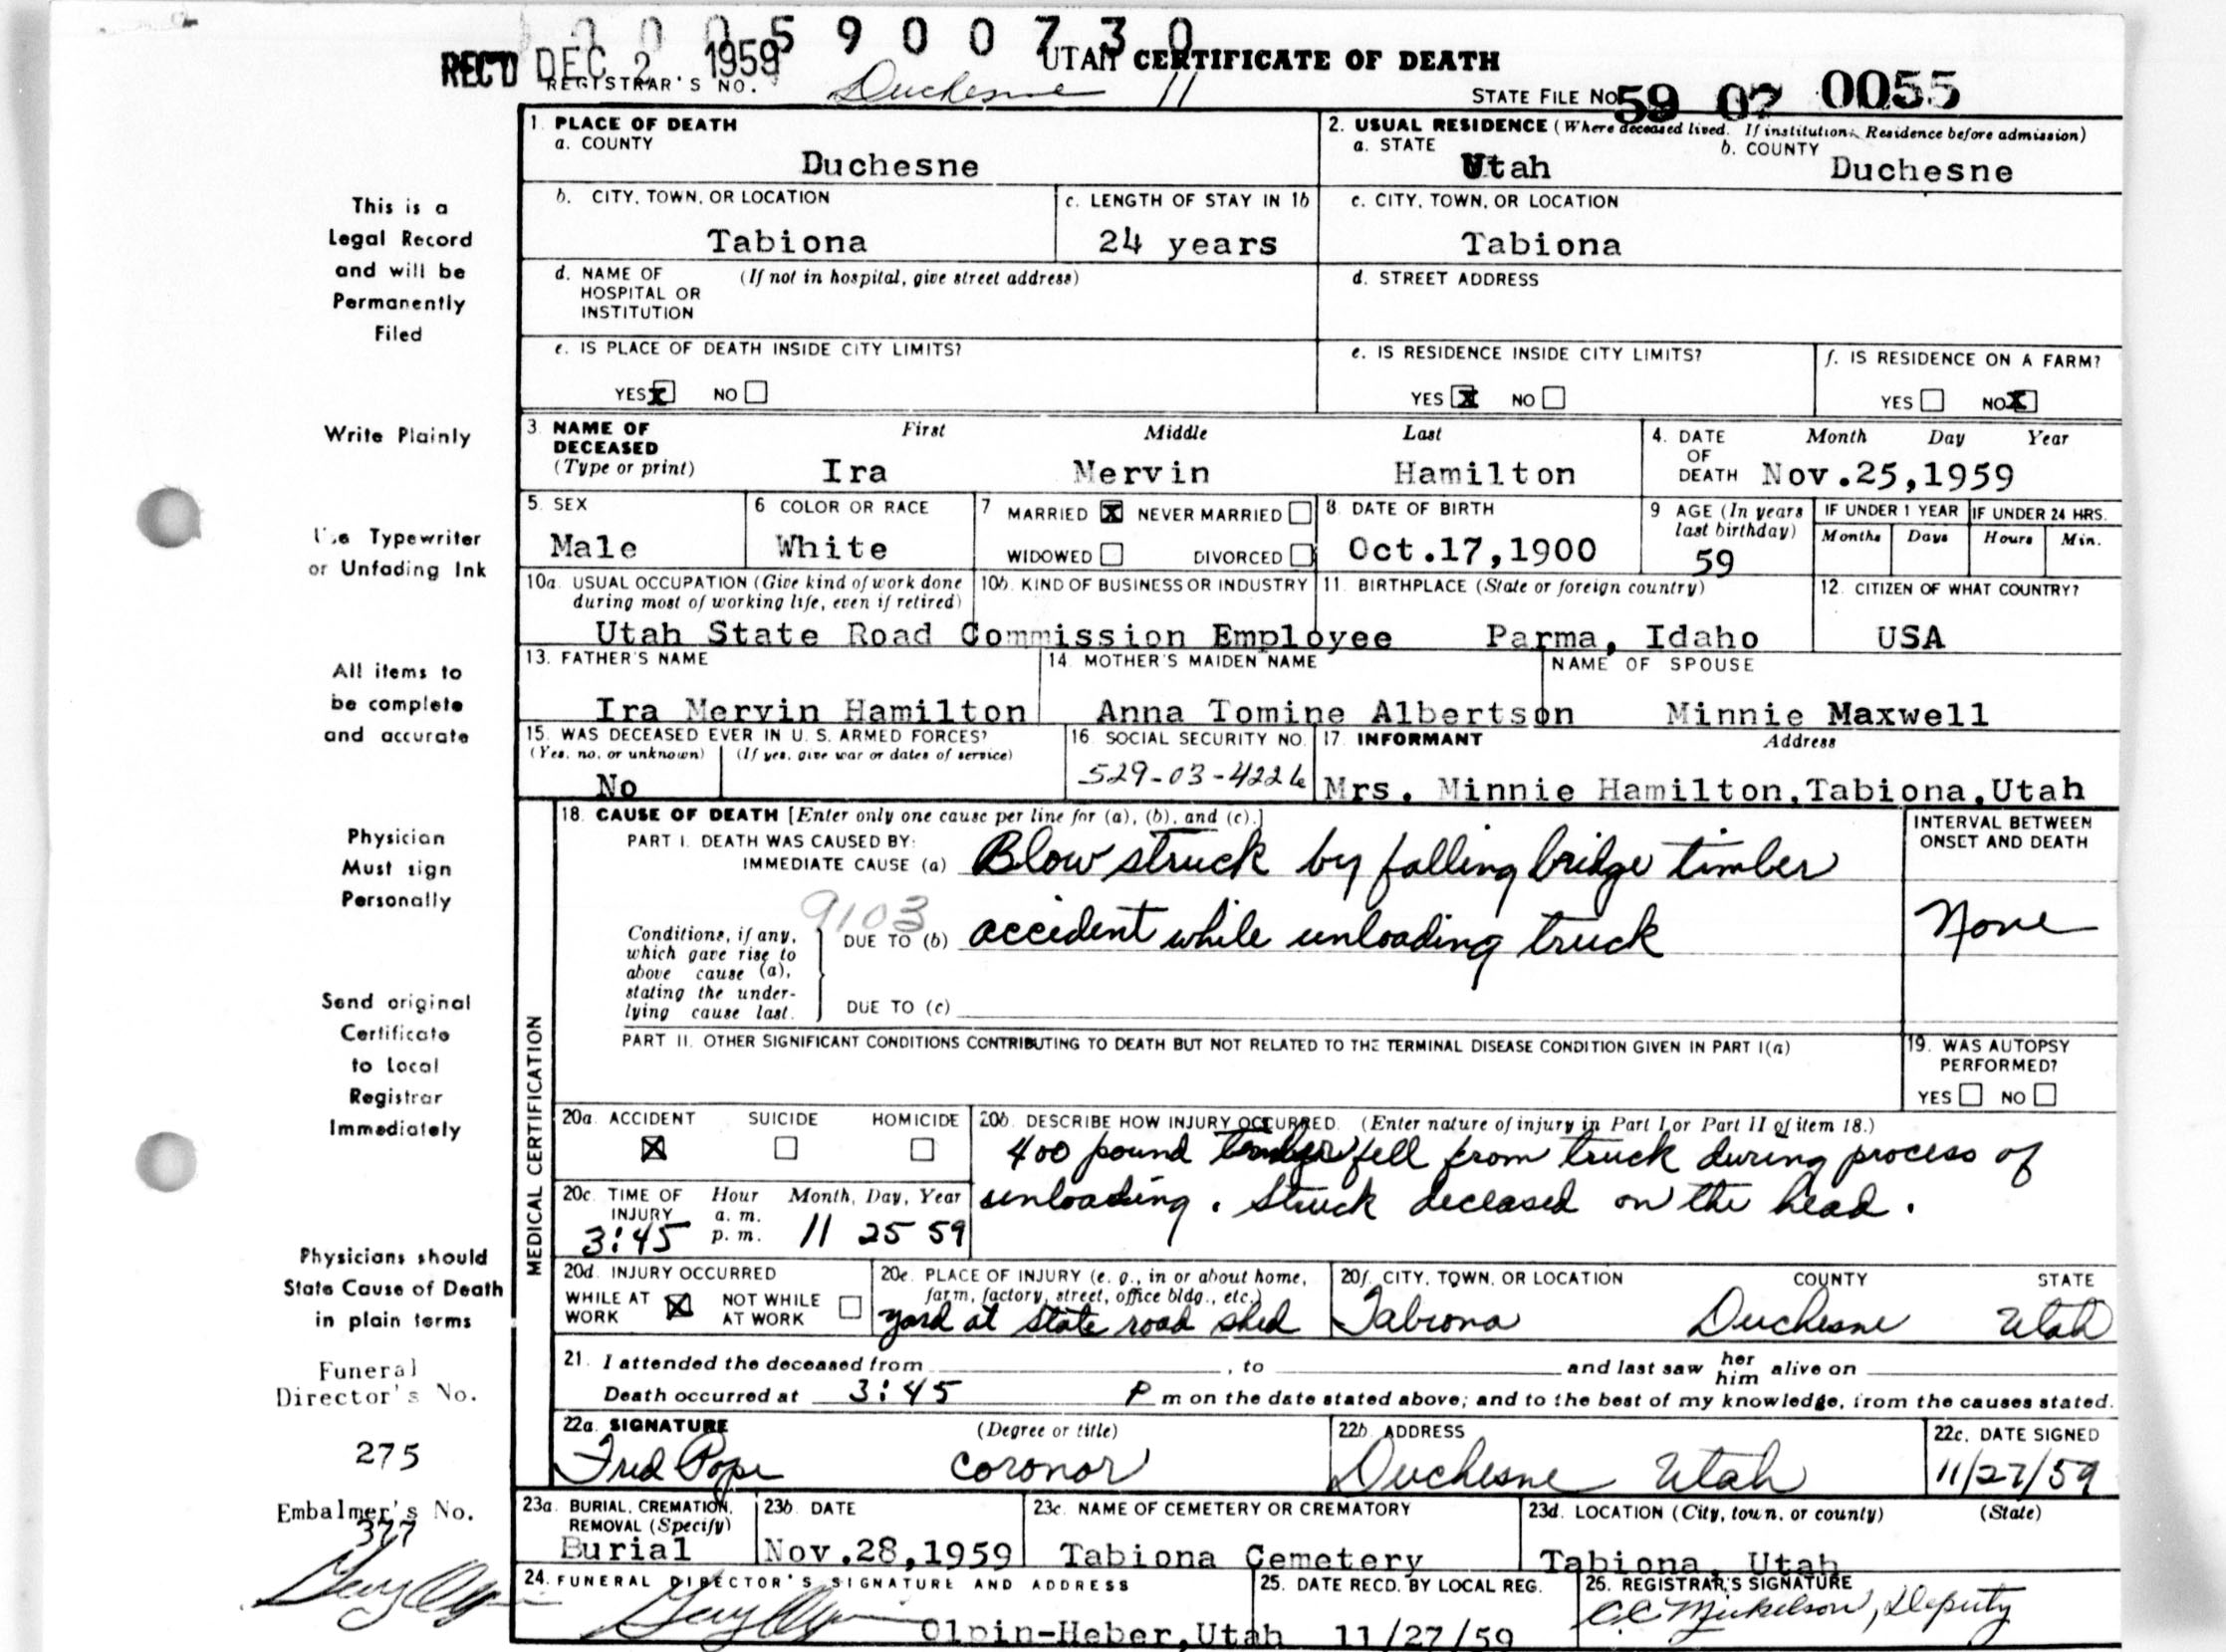 0005900730
REC'D DEC 2 1959 UTAH CERTIFICATE OF DEATH
REGISTRAR'S NO. Duchesne 11
STATE FILE No 59 07 0055
1. PLACE OF DEATH
a. COUNTY
Duchesne
2. USUAL RESIDENCE (Where deceased lived. If institution: Residence before admission)
a. STATE b. COUNTY
Utah Duchesne
b. CITY, TOWN, OR LOCATION
Tabiona
c. LENGTH OF STAY IN 1b
24 years
c. CITY, TOWN, OR LOCATION
Tabiona
d. NAME OF (If not in hospital, give street address)
HOSPITAL OR
INSTITUTION
d. STREET ADDRESS
e. IS PLACE OF DEATH INSIDE CITY LIMITS?
YES X NO
e. IS RESIDENCE INSIDE CITY LIMITS?
YES X NO
f. IS RESIDENCE ON A FARM?
YES NO X
This is a
Legal Record
and will be
Permanently
Filed
Write Plainly
Use Typewriter
or Unfading Ink
All items to
be complete
and accurate
Physician
Must sign
Personally
Send original
Certificate
to Local
Registrar
Immediately
Physicians should
State Cause of Death
in plain terms
Funeral
Director's No.
275
Embalmer's No.
377
3. NAME OF First Middle Last
DECEASED
(Type or print) Ira Mervin Hamilton
4. DATE Month Day Year
OF
DEATH Nov.25,1959
5. SEX
Male
6 COLOR OR RACE
White
7 MARRIED X NEVER MARRIED
WIDOWED DIVORCED
8. DATE OF BIRTH
Oct.17,1900
9 AGE (In years
last birthday)
59
IF UNDER 1 YEAR IF UNDER 24 HRS.
Months Days Hours Min.
10a. USUAL OCCUPATION (Give kind of work done
during most of working life, even if retired)
10b. KIND OF BUSINESS OR INDUSTRY
Utah State Road Commission Employee
11. BIRTHPLACE (State or foreign country)
Parma, Idaho
12. CITIZEN OF WHAT COUNTRY?
USA
13. FATHER'S NAME
Ira Mervin Hamilton
14. MOTHER'S MAIDEN NAME
Anna Tomine Albertson
NAME OF SPOUSE
Minnie Maxwell
15. WAS DECEASED EVER IN U. S. ARMED FORCES?
(Yes, no, or unknown) (If yes, give war or dates of service)
No
16. SOCIAL SECURITY NO.
529-03-4226
17. INFORMANT Address
Mrs. Minnie Hamilton,Tabiona,Utah
MEDICAL CERTIFICATION
18. CAUSE OF DEATH [Enter only one cause per line for (a), (b), and (c).]
PART I. DEATH WAS CAUSED BY:
IMMEDIATE CAUSE (a) Blow struck by falling bridge timber
9103
Conditions, if any,
which gave rise to
above cause (a),
stating the under-
lying cause last.
DUE TO (b) accident while unloading truck
DUE TO (c)
INTERVAL BETWEEN
ONSET AND DEATH
None
PART II. OTHER SIGNIFICANT CONDITIONS CONTRIBUTING TO DEATH BUT NOT RELATED TO THE TERMINAL DISEASE CONDITION GIVEN IN PART I(a)
19. WAS AUTOPSY
PERFORMED?
YES NO
20a. ACCIDENT SUICIDE HOMICIDE
X
20b. DESCRIBE HOW INJURY OCCURRED. (Enter nature of injury in Part I or Part II of item 18.)
400 pound timber fell from truck during process of
unloading. Struck deceased on the head.
20c. TIME OF Hour Month, Day, Year
INJURY a. m.
3:45 p. m. 11 25 59
20d. INJURY OCCURRED
WHILE AT X NOT WHILE
WORK AT WORK
20e. PLACE OF INJURY (e. g., in or about home,
farm, factory, street, office bldg., etc.)
yard at state road shed
20f. CITY, TOWN, OR LOCATION COUNTY STATE
Tabiona Duchesne Utah
21. I attended the deceased from , to and last saw her him alive on
Death occurred at 3:45 P m on the date stated above; and to the best of my knowledge, from the causes stated.
22a. SIGNATURE (Degree or title)
Fred Pope coronor
22b. ADDRESS
Duchesne Utah
22c. DATE SIGNED
11/27/59
23a. BURIAL, CREMATION,
REMOVAL (Specify)
Burial
23b. DATE
Nov.28,1959
23c. NAME OF CEMETERY OR CREMATORY
Tabiona Cemetery
23d. LOCATION (City, town, or county) (State)
Tabiona, Utah
24. FUNERAL DIRECTOR'S SIGNATURE AND ADDRESS
Olpin-Heber,Utah
25. DATE RECD. BY LOCAL REG.
11/27/59
26. REGISTRAR'S SIGNATURE
C.C. Mickelson, Deputy